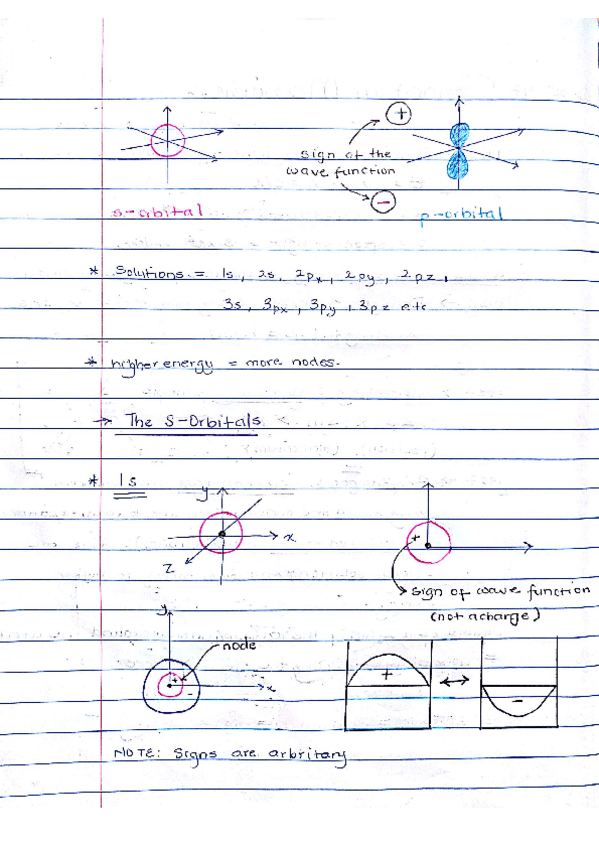 +
sign of the
wave function
-
s-orbital
p-orbital
* Solutions = 1s, 2s, 2px, 2py, 2pz,
3s, 3px, 3py, 3pz etc
* higher energy = more nodes.
→ The S-Orbitals
* 1s
y
x
z
+
sign of wave function
(not a charge)
y
node
+
-
x
+
↔
-
NOTE: Signs are arbritary